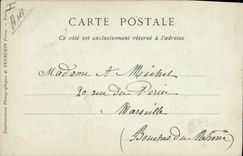 CARTE POSTALE
Ce côté est exclusivement réservé à l'adresse
Madame A. Michel
20 rue du
Marseille
(Bouches du Rhône)
Etablissements Photographiques de NEURDEIN Frères